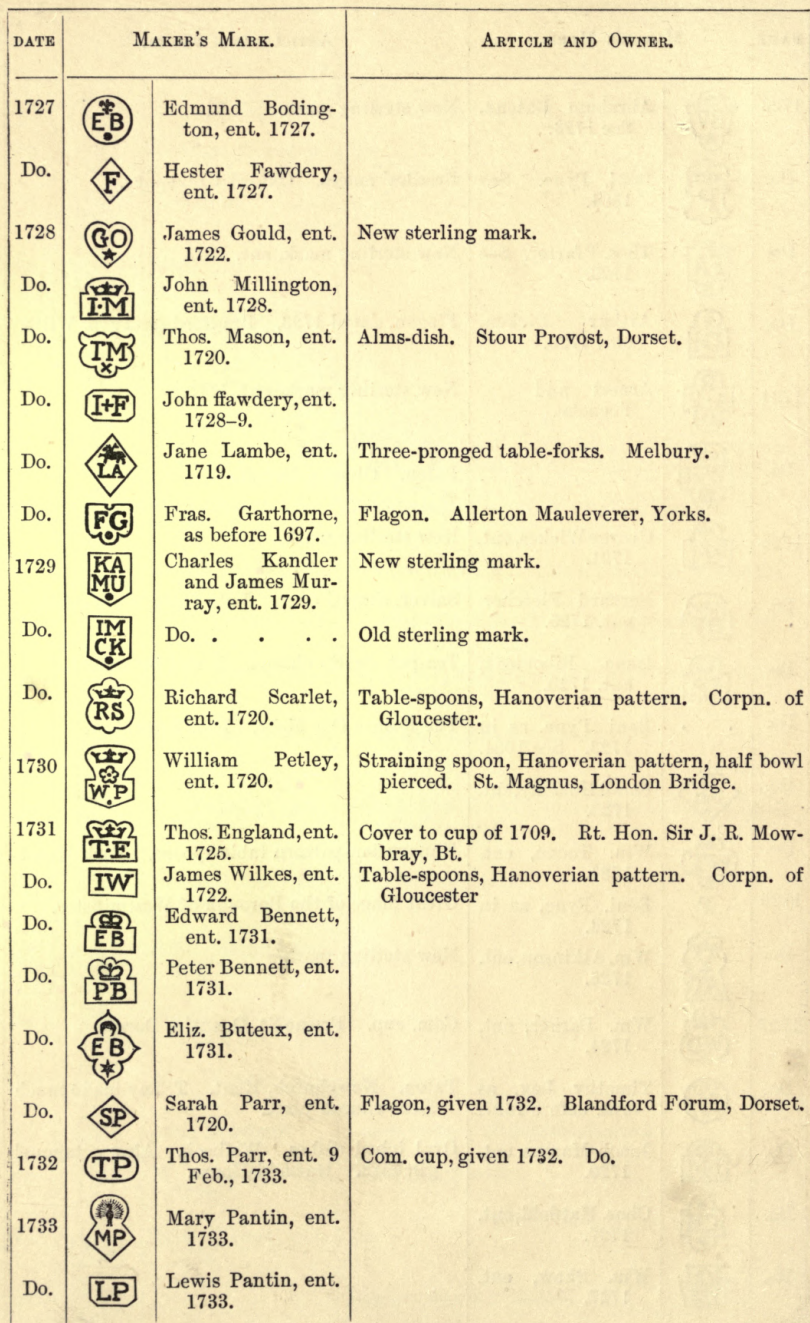 DATE MAKER'S MARK. ARTICLE AND OWNER.
1727 EB Edmund Boding-
ton, ent. 1727.
Do. F Hester Fawdery,
ent. 1727.
1728 GO James Gould, ent. New sterling mark.
1722.
Do. I·M John Millington,
ent. 1728.
Do. TM Thos. Mason, ent. Alms-dish. Stour Provost, Dorset.
1720.
Do. I+F John ffawdery, ent.
1728-9.
Do. LA Jane Lambe, ent. Three-pronged table-forks. Melbury.
1719.
Do. FG Fras. Garthorne, Flagon. Allerton Mauleverer, Yorks.
as before 1697.
1729 KA MU Charles Kandler New sterling mark.
and James Mur-
ray, ent. 1729.
Do. IM CK Do. . . . . Old sterling mark.
Do. RS Richard Scarlet, Table-spoons, Hanoverian pattern. Corpn. of
ent. 1720. Gloucester.
1730 W.P William Petley, Straining spoon, Hanoverian pattern, half bowl
ent. 1720. pierced. St. Magnus, London Bridge.
1731 T·E Thos. England, ent. Cover to cup of 1709. Rt. Hon. Sir J. R. Mow-
1725. bray, Bt.
Do. IW James Wilkes, ent. Table-spoons, Hanoverian pattern. Corpn. of
1722. Gloucester
Do. EB Edward Bennett,
ent. 1731.
Do. PB Peter Bennett, ent.
1731.
Do. EB Eliz. Buteux, ent.
1731.
Do. SP Sarah Parr, ent. Flagon, given 1732. Blandford Forum, Dorset.
1720.
1732 TP Thos. Parr, ent. 9 Com. cup, given 1732. Do.
Feb., 1733.
1733 MP Mary Pantin, ent.
1733.
Do. LP Lewis Pantin, ent.
1733.